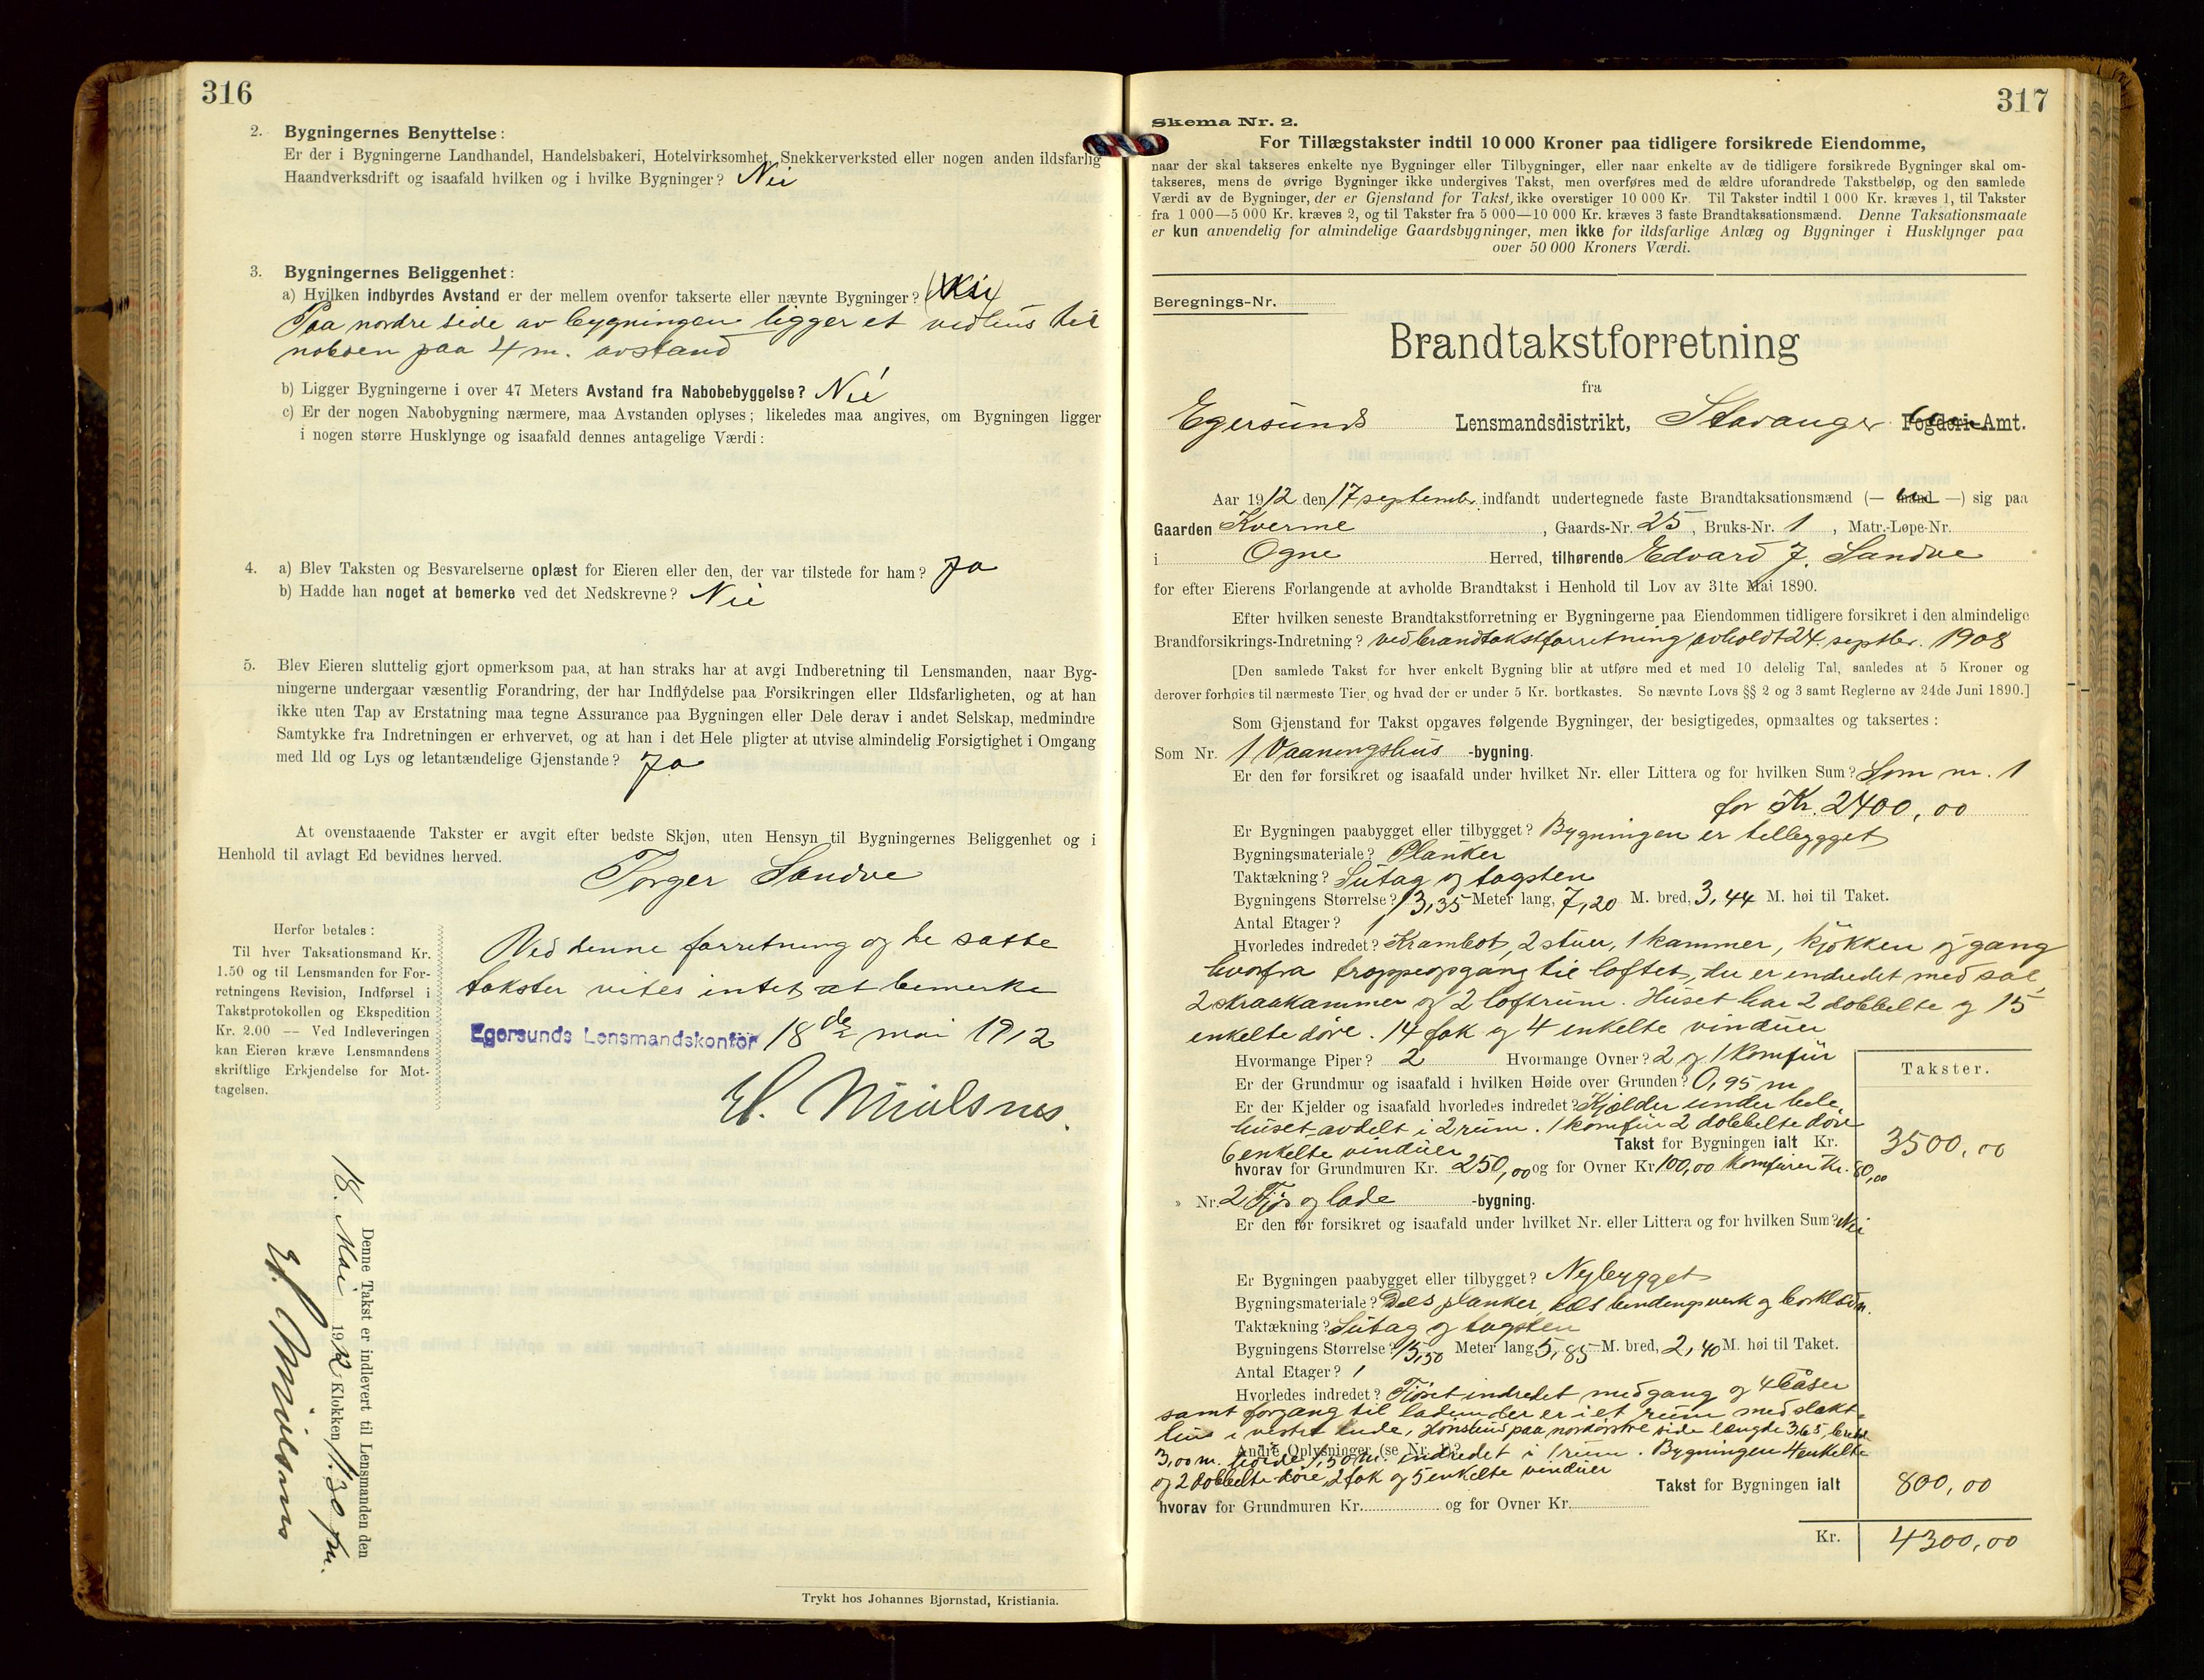 316
2. Bygningernes Benyttelse:
Er der i Bygningerne Landhandel, Handelsbakeri, Hotelvirksomhet, Snekkerverksted eller nogen anden ildsfarlig
Haandverksdrift og isaafald hvilken og i hvilke Bygninger? Nei
3. Bygningernes Beliggenhet:
a) Hvilken indbyrdes Avstand er der mellem ovenfor takserte eller nævnte Bygninger?
Paa nordre side av bygningen ligger et vedhus til
naboen paa 4 m. avstand
b) Ligger Bygningerne i over 47 Meters Avstand fra Nabobebyggelse? Nei
c) Er der nogen Nabobygning nærmere, maa Avstanden oplyses; likeledes maa angives, om Bygningen ligger
i nogen større Husklynge og isaafald dennes antagelige Værdi:
4. a) Blev Taksten og Besvarelserne oplæst for Eieren eller den, der var tilstede for ham? Ja
b) Hadde han noget at bemerke ved det Nedskrevne? Nei
5. Blev Eieren sluttelig gjort opmerksom paa, at han straks har at avgi Indberetning til Lensmanden, naar Byg-
ningerne undergaar væsentlig Forandring, der har Indflydelse paa Forsikringen eller Ildsfarligheten, og at han
ikke uten Tap av Erstatning maa tegne Assurance paa Bygningen eller Dele derav i andet Selskap, medmindre
Samtykke fra Indretningen er erhvervet, og at han i det Hele pligter at utvise almindelig Forsigtighet i Omgang
med Ild og Lys og letantændelige Gjenstande? Ja
At ovenstaaende Takster er avgit efter bedste Skjøn, uten Hensyn til Bygningernes Beliggenhet og i
Henhold til avlagt Ed bevidnes herved.
Torger Sandve
Herfor betales:
Til hver Taksationsmand Kr.
1.50 og til Lensmanden for For-
retningens Revision, Indførsel i
Takstprotokollen og Ekspedition
Kr. 2.00 — Ved Indleveringen
kan Eieren kræve Lensmandens
skriftlige Erkjendelse for Mot-
tagelsen.
Ved denne forretning og de satte
takster vites intet at bemerke
Egersunds Lensmandskontor 18de mai 1912
Denne Takst er indlevert til Lensmanden den
18. Mai 1912 Klokken 11.30 fm.
Trykt hos Johannes Bjørnstad, Kristiania.
317
Skema Nr. 2.
For Tillægstakster indtil 10 000 Kroner paa tidligere forsikrede Eiendomme,
naar der skal takseres enkelte nye Bygninger eller Tilbygninger, eller naar enkelte av de tidligere forsikrede Bygninger skal om-
takseres, mens de øvrige Bygninger ikke undergives Takst, men overføres med de ældre uforandrede Takstbeløp, og den samlede
Værdi av de Bygninger, der er Gjenstand for Takst, ikke overstiger 10 000 Kr. Til Takster indtil 1 000 Kr. kræves 1, til Takster
fra 1 000—5 000 Kr. kræves 2, og til Takster fra 5 000—10 000 Kr. kræves 3 faste Brandtaksationsmænd. Denne Taksationsmaate
er kun anvendelig for almindelige Gaardsbygninger, men ikke for ildsfarlige Anlæg og Bygninger i Husklynger paa
over 50 000 Kroners Værdi.
Beregnings-Nr.
Brandtakstforretning
fra
Egersunds Lensmandsdistrikt, Stavanger Fogderi-Amt.
Aar 1912 den 17 september indfandt undertegnede faste Brandtaksationsmænd (— mand —) sig paa
Gaarden Kverme, Gaards-Nr. 25, Bruks-Nr. 1, Matr.-Løpe-Nr.
i Ogne Herred, tilhørende Edvard J. Sandve
for efter Eierens Forlangende at avholde Brandtakst i Henhold til Lov av 31te Mai 1890.
Efter hvilken seneste Brandtakstforretning er Bygningerne paa Eiendommen tidligere forsikret i den almindelige
Brandforsikrings-Indretning? ved brandtakstforretning avholdt 24. septbr. 1908
[Den samlede Takst for hver enkelt Bygning blir at utføre med et med 10 delelig Tal, saaledes at 5 Kroner og
derover forhøies til nærmeste Tier, og hvad der er under 5 Kr. bortkastes. Se nævnte Lovs §§ 2 og 3 samt Reglerne av 24de Juni 1890.]
Som Gjenstand for Takst opgaves følgende Bygninger, der besigtigedes, opmaaltes og taksertes:
Som Nr. 1 Vaaningshus -bygning.
Er den før forsikret og isaafald under hvilket Nr. eller Littera og for hvilken Sum? Som nr. 1
for Kr. 2400,00
Er Bygningen paabygget eller tilbygget? Bygningen er tilbygget
Bygningsmateriale? Planker
Taktækning? Sutag og tagsten
Bygningens Størrelse? 13,35 Meter lang, 7,20 M. bred, 3,44 M. høi til Taket.
Antal Etager? 1
Hvorledes indredet? Krambod, 2 stuer, 1 kammer, kjøkken og gang
hvorfra trappeopgang til loftet, der er indredet med sal,
2 skraakammer og 2 loftrum. Huset har 2 dobbelte og 15
enkelte døre. 14 fak og 4 enkelte vinduer
Hvormange Piper? 2 Hvormange Ovner? 2 og 1 komfur
Er der Grundmur og isaafald i hvilken Høide over Grunden? 0,95 m
Er der Kjelder og isaafald hvorledes indredet? Kjelder under hele
huset avdelt i 2 rum. 1 komfur 2 dobbelte døre
6 enkelte vinduer
Takster.
Takst for Bygningen ialt Kr. 3500,00
hvorav for Grundmuren Kr. 250,00 og for Ovner Kr 100,00 Komfurer Kr. 80,00
» Nr. 2 Fjøs og lade -bygning.
Er den før forsikret og isaafald under hvilket Nr. eller Littera og for hvilken Sum? Nei
Er Bygningen paabygget eller tilbygget? Nybygget
Bygningsmateriale? Dels planker, dels bindingsverk og bordkledn.
Taktækning? Sutag og tagsten
Bygningens Størrelse? 15,50 Meter lang, 5,85 M. bred, 2,40 M. høi til Taket.
Antal Etager? 1
Hvorledes indredet? Fjøset indredet med gang og 4 baaser
samt forgang til laden der er i et rum med slakt-
hus i vestre ende, Hønshus paa nordøstre side længde 3,65, bredde
3,00 m. høide 1,50 m. indredet i 1 rum. Bygningen 4 enkelte
Andre Oplysninger (se Nr. 1)?
og 2 dobbelte døre, 2 fak og 5 enkelte vinduer
Takst for Bygningen ialt 800,00
hvorav for Grundmuren Kr. og for Ovner Kr.
Kr. 4300,00